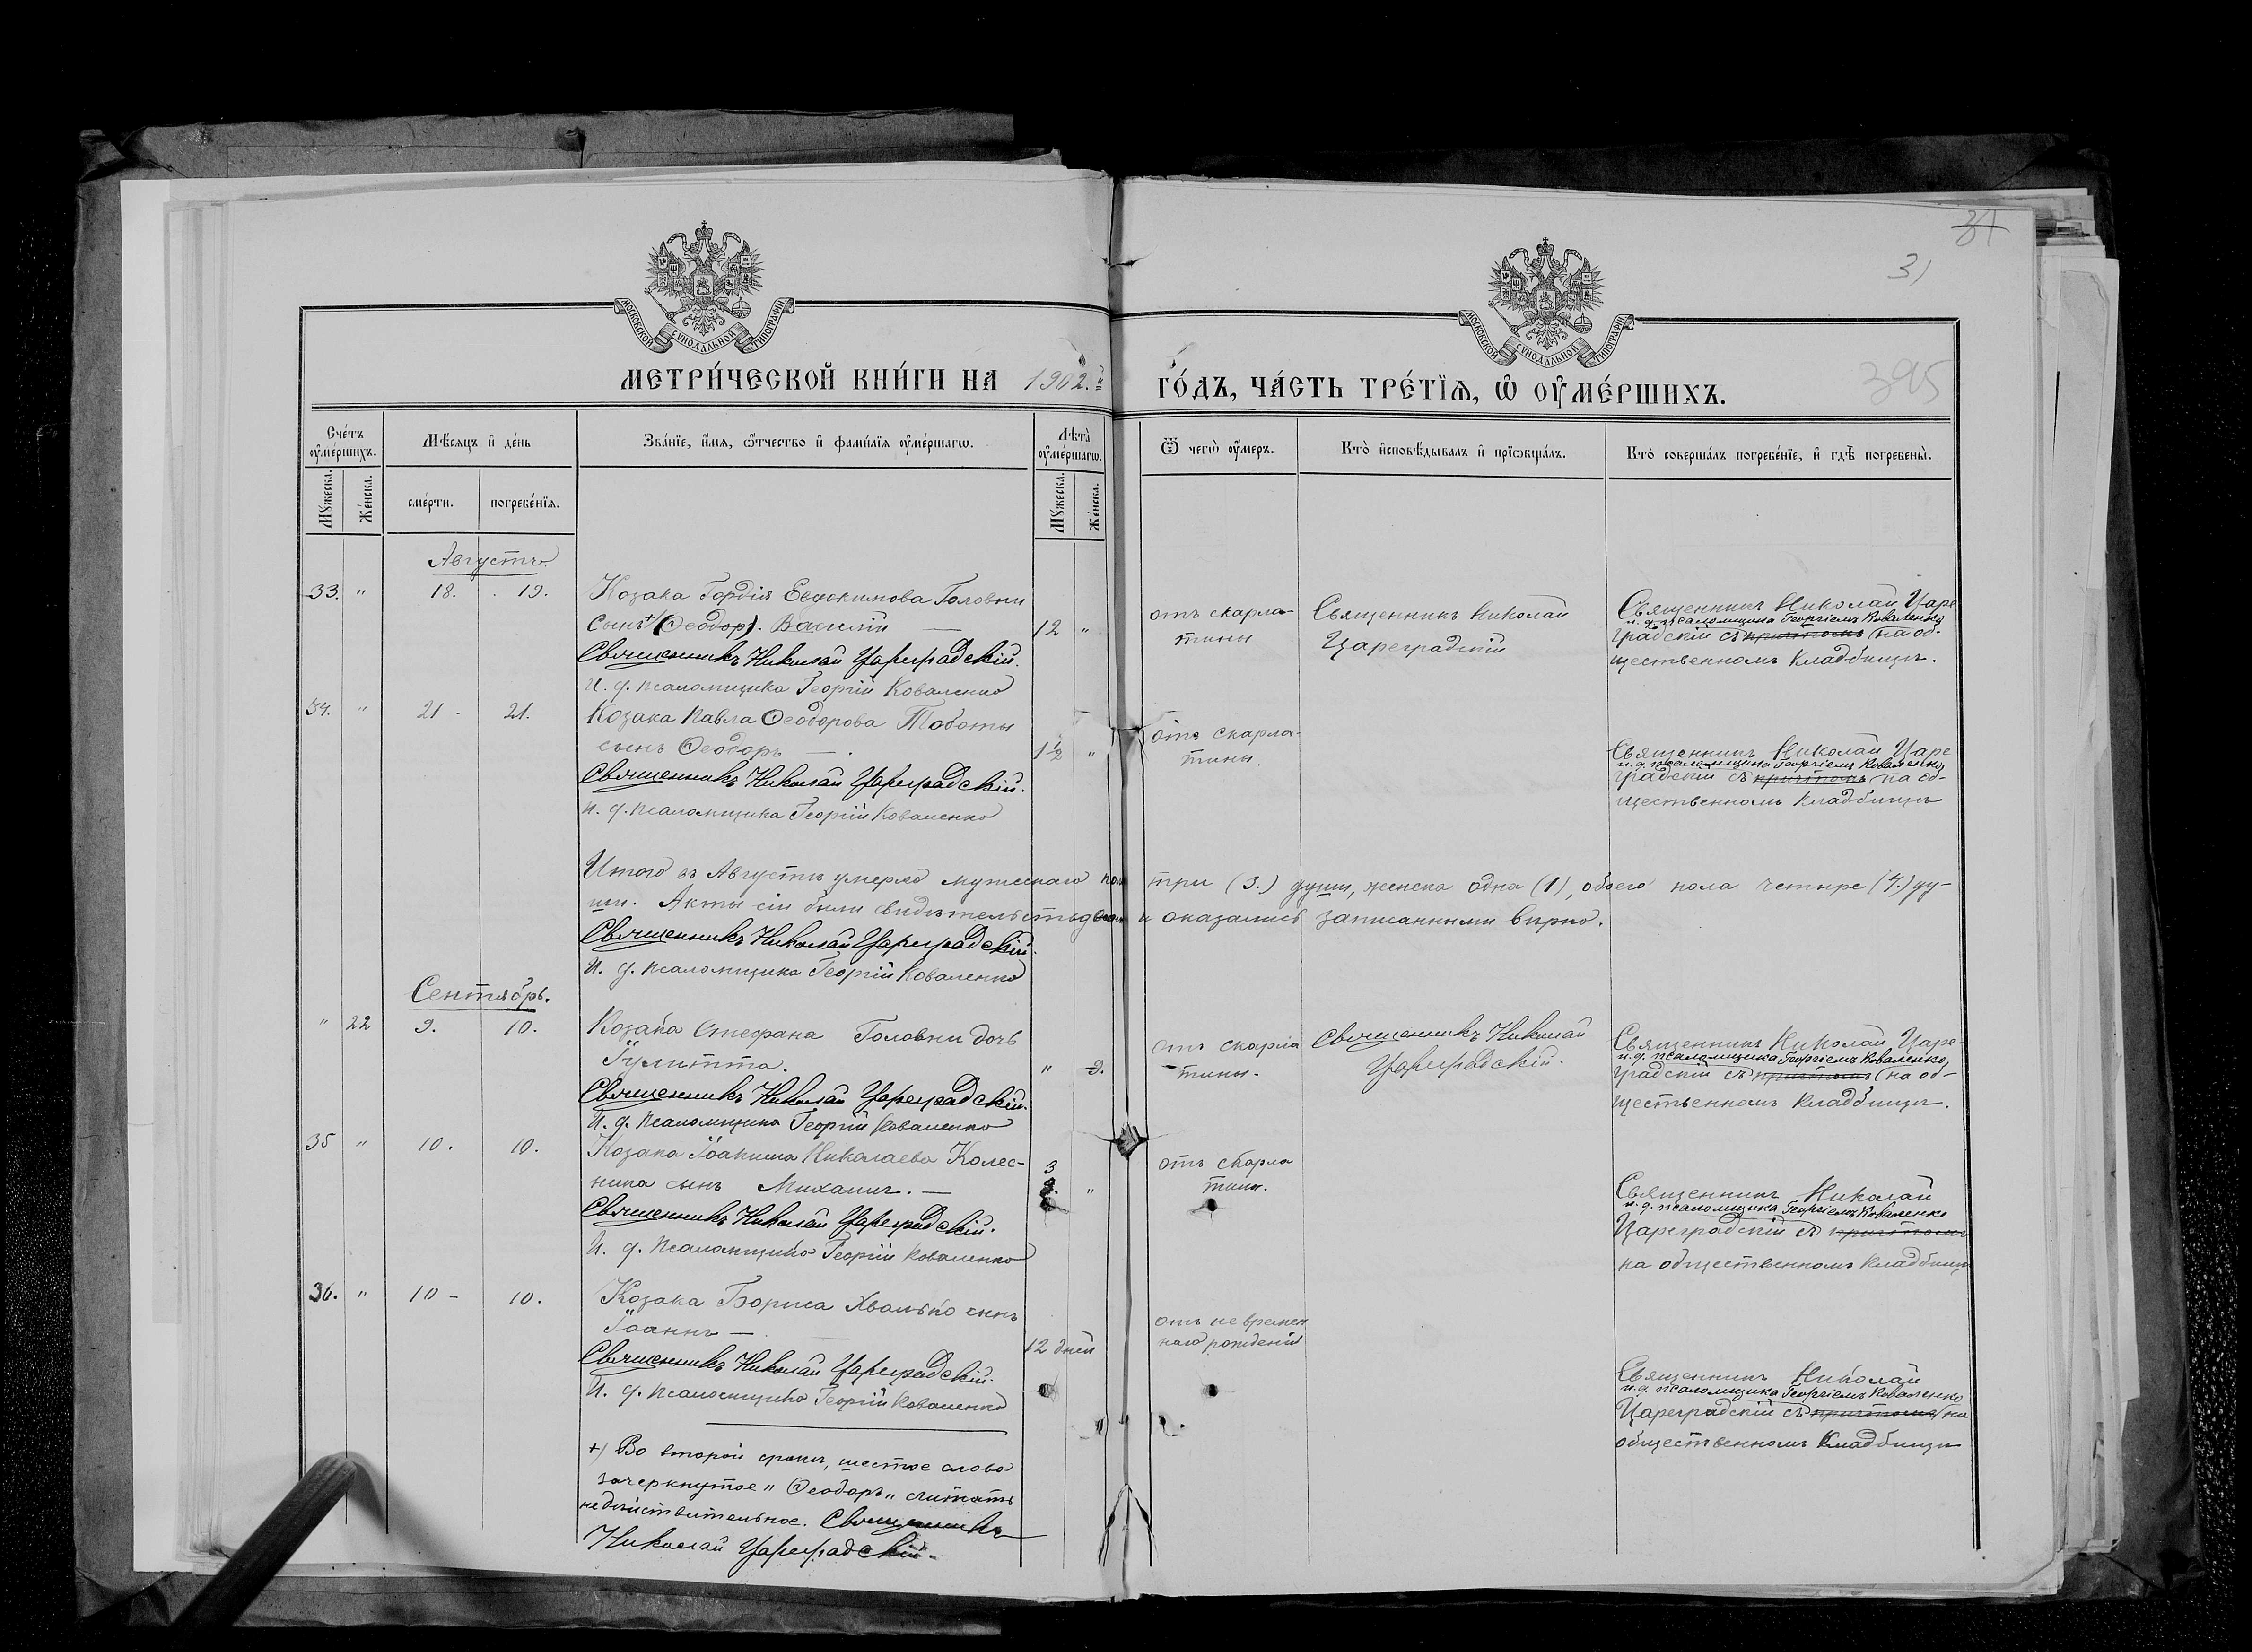 31
31
395
МОСКОВСКОЙ СѴНОДАЛЬНОЙ ТИПОГРАФІИ
МОСКОВСКОЙ СѴНОДАЛЬНОЙ ТИПОГРАФІИ
МЕТРИ́ЧЕСКОЙ КНИ́ГИ НА 1902.й ГО́ДЪ, ЧА́СТЬ ТРЕ́ТЇѦ, Ѡ ОУМЕ́РШИХЪ.
Сче́тъ оуме́ршихъ.
Мꙋжеска.
Же́нска.
Мѣсѧцъ и҆ де́нь
сме́рти.
погребе́нїѧ.
Зва́нїе, и҆́мѧ, ѻ҆́тчество и҆ фами́лїѧ оуме́ршагѡ.
Лѣта̀ оуме́ршагѡ.
Мꙋжеска.
Же́нска.
Ѿ чегѡ̀ оу҆́меръ.
Кто̀ и҆сповѣ́дывалъ и҆ прїѡбща́лъ.
Кто̀ соверша́лъ погребе́нїе, и҆ гдѣ̀ погребены̀.
Августъ
33. " 18. 19.
Козака Гордія Евфокимова Головни
сынъ +/(Ѳеодоръ). Василій —
12 "
Священникъ Николай Цареградскій.
И. д. псаломщика Георгій Коваленко
отъ скарла-
тины
Священникъ Николай
Цареградскій
Священникъ Николай Царе
и. д. псаломщика Георгіемъ Коваленко
градскій съ причтомъ на об-
щественномъ кладбищѣ.
34. " 21 - 21.
Козака Павла Ѳеодорова Тоботы
сынъ Ѳеодоръ —.
1½ "
Священникъ Николай Цареградскій.
И. д. псаломщика Георгій Коваленко
отъ скарла-
тины.
Священникъ Николай Царе
и. д. псаломщика Георгіемъ Коваленко
градскій съ причтомъ на об-
щественномъ кладбищѣ
Итого въ Августѣ умерло мужескаго пола три (3.) души, женска одна (1), обоего пола четыре (4.) ду-
ши. Акты сіи были свидѣтельствованы и оказались записанными вѣрно.
Священникъ Николай Цареградскій.
И. д. псаломщика Георгій Коваленко
Сентябрь.
" 22 9. 10.
Козака Стефана Головни дочь
Іулитта.
" 9.
Священникъ Николай Цареградскій.
И. д. псаломщика Георгій Коваленко
отъ скарла
тины.
Священникъ Николай
Цареградскій.
Священникъ Николай Царе-
и. д. псаломщика Георгіемъ Коваленко,
градскій съ причтомъ на об-
щественномъ кладбищѣ.
35 " 10. 10.
Козака Іоакима Николаева Колес-
ника сынъ Михаилъ. —
3 "
Священникъ Николай Цареградскій.
И. д. псаломщика Георгій Коваленко
отъ скарла
тины.
Священникъ Николай
и. д. псаломщика Георгіемъ Коваленко
Цареградскій съ причтомъ
на общественномъ кладбищѣ
36. " 10 - 10.
Козака Бориса Хвалько сынъ
Іоаннъ —
12 дней
Священникъ Николай Цареградскій.
И. д. псаломщика Георгій Коваленко
отъ не времен
наго рожденія
Священникъ Николай
и. д. псаломщика Георгіемъ Коваленко
Цареградскій съ причтомъ на
общественномъ кладбищѣ
+) Во второй строкѣ, шестое слово
зачеркнутое "Ѳеодоръ" считать
недѣйствительное. Священникъ
Николай Цареградскій.